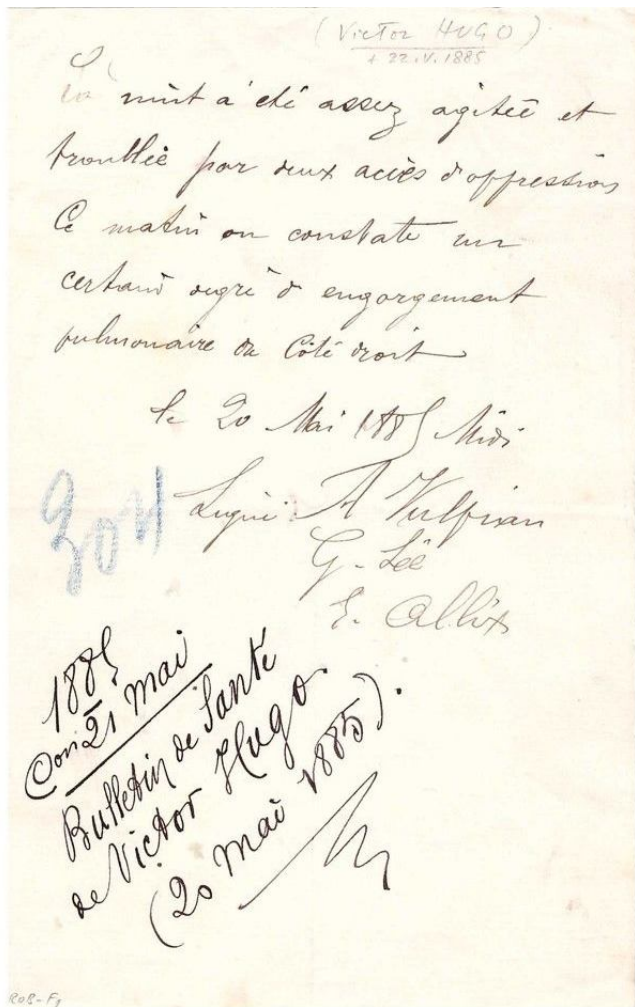 (Victor HUGO)
+ 22.V.1885
La nuit a été assez agitée et
troublée par deux accès d'oppression
Ce matin on constate un
certain degré d'engorgement
pulmonaire du Côté droit
le 20 Mai 1885 Midi
Signé: A Vulpian
G. Sée
E. Allix
304
1885
21 Mai
Bulletin de Santé
de Victor Hugo
(20 Mai 1885).